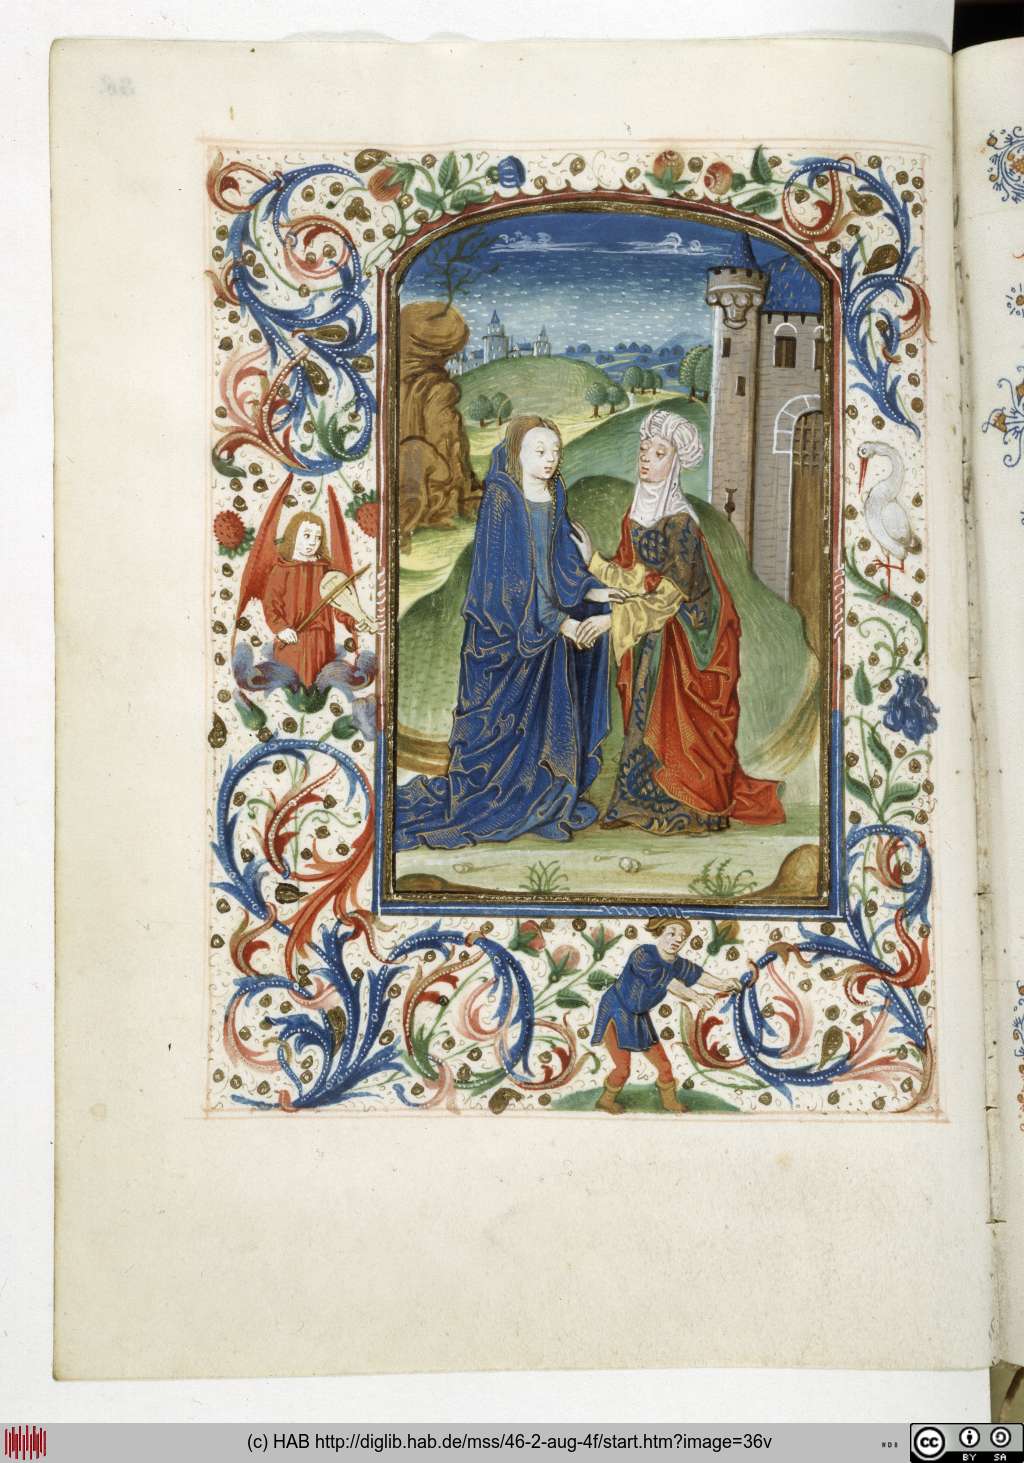 (c) HAB http://diglib.hab.de/mss/46-2-aug-4f/start.htm?image=36v
WDB
cc
BY SA